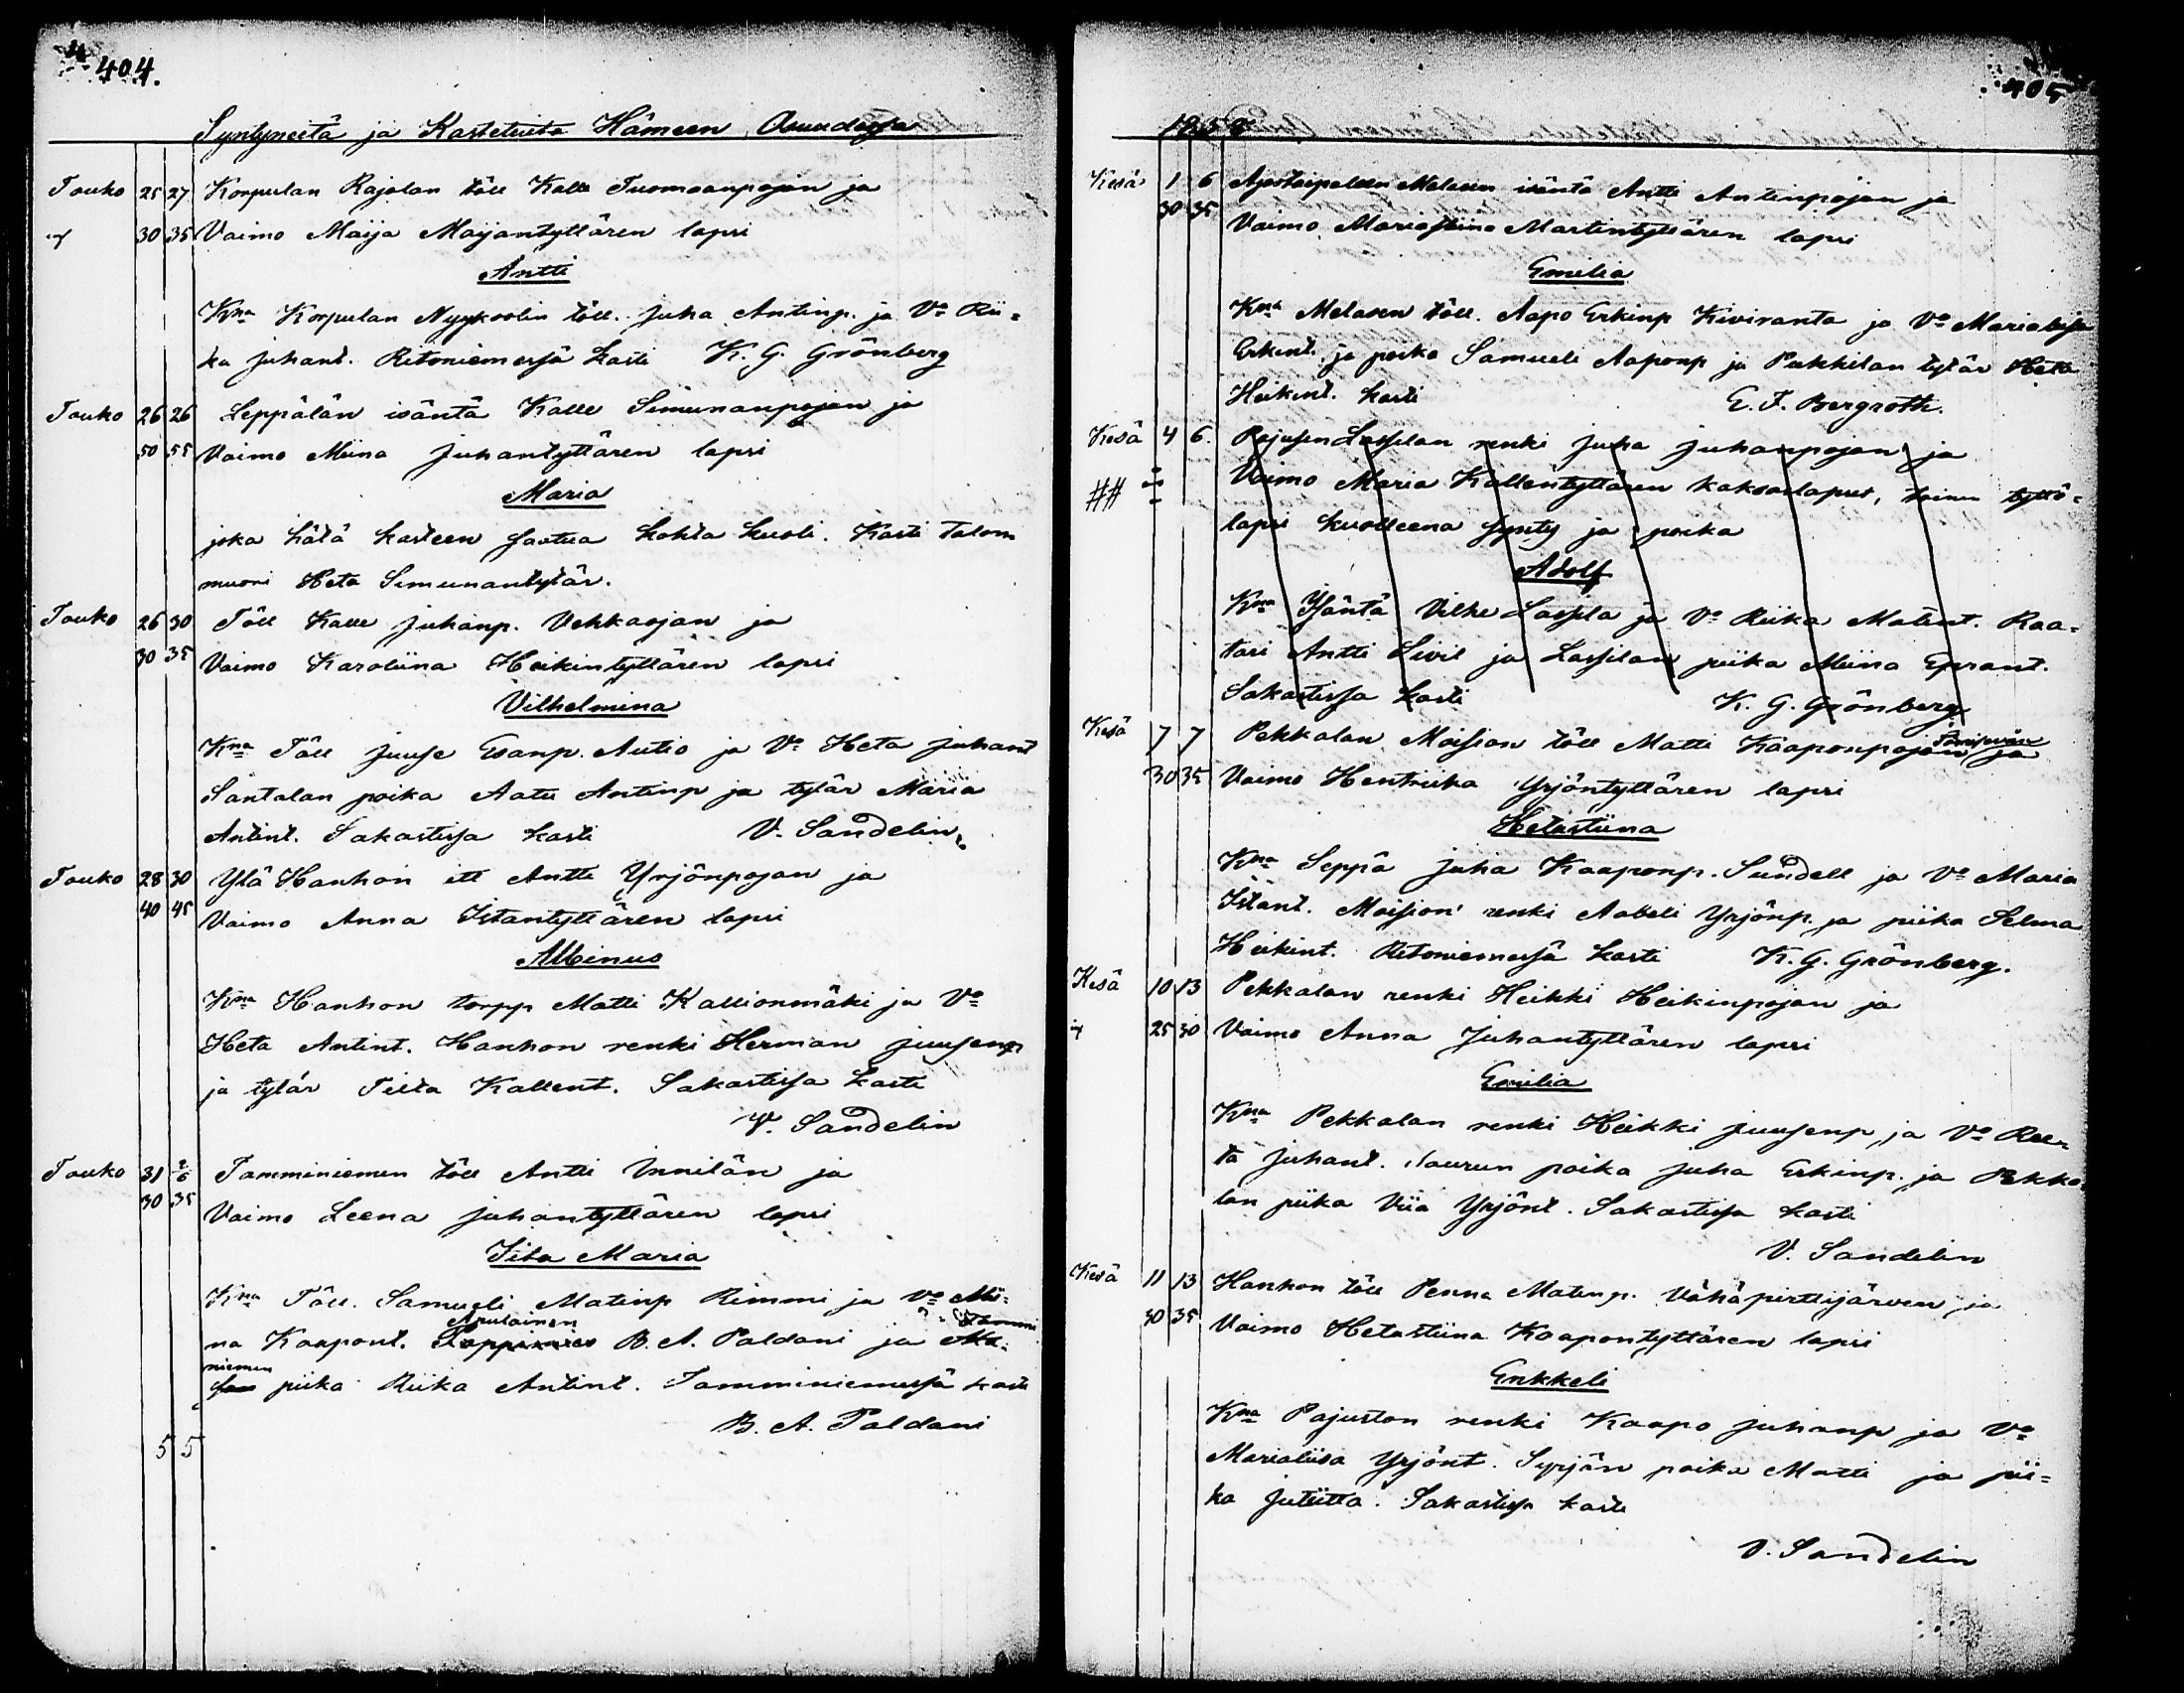 404.
Syntyneitä ja Kastetuita Hämeen Osuudessa
Touko 25 27 Korpulan Rajalan töll Kalle Tuomaanpojan ja
30 35 Vaimo Maija Maijantyttären lapsi
Antti
Kna Korpulan Nyykoolin töll. Juha Antinp. ja Vo Rii=
ka Juhant. Ritoniemessä kasti K. G. Grönberg
Touko 26 26 Leppälän isäntä Kalle Simunanpojan ja
50 55 Vaimo Miina Juhantyttären lapsi
Maria
joka hätä kasteen saatua kohta kuoli. Kasti talon
muori Heta Simunantytär.
Touko 26 30 Töll Kalle Juhanp. Vehkaojan ja
30 35 Vaimo Karoliina Heikintyttären lapsi
Vilhelmina
Kna Töll Juuse Esanp. Autio ja Vo Heta Juhant
Santalan poika Aatu Antinp ja tytär Maria
Antint. Sakastissa kasti V. Sandelin
Touko 28 30 Ylä Hanhon itt Antti Yrjönpojan ja
40 45 Vaimo Anna Iitantyttären lapsi
Albinus
Kna Hanhon torpp Matti Kallionmäki ja Vo
Heta Antint. Hanhon renki Herman Juusenp
ja tytär Tilta Kallent. Sakastissa kasti
V. Sandelin
Touko 31 2/6 Tamminiemen töll Antti Unnilän ja
30 35 Vaimo Leena Juhantyttären lapsi
Iita Maria
Kna Töll. Samueli Matinp Rimmi ja vo Mii=
na Kaapont. Apulainen B. A. Paldani ja Tammi
niemen piika Riika Antint. Tamminiemessä kasti
B. A. Paldani
5 5
405
1858
Kesä 1 6 Ajostaipaleen Melasen isäntä Antti Antinpojan ja
30 35 Vaimo Mariastiina Martintyttären lapsi
Emilia
Kna Melasen töll. Aapo Erkinp Kiviranta ja Vo Marialiisa
Erkint. ja poika Samueli Aaponp ja Pukkilan tytär Heta
Heikint. kasti E. F. Bergroth.
Kesä 4 6. Pajusen Lassilan renki Juha Juhanpojan ja
## Vaimo Maria Kallentyttären kaksoslapset, toinen tyttö=
lapsi kuolleena synty ja poika
Adolf
Kna Isäntä Vilhe Lassila ja Vo Riika Matint. Raa=
tari Antti Sivil ja Lassilan piika Miina Eprant.
Sakastissa kasti K. G. Grönberg
Kesä 7 7 Pekkalan Moision töll Matti Kaaponpojan ja
30 35 Vaimo Hentriika Yrjöntyttären lapsi
Hetastiina
Kna Seppä Juha Kaaponp. Sundell ja Vo Maria
Iitant. Moision renki Aabeli Yrjönp. ja piika Selma
Heikint. Ritoniemessä kasti K. G. Grönberg.
Kesä 10 13 Pekkalan renki Heikki Heikinpojan ja
25 30 Vaimo Anna Juhantyttären lapsi
Emilia
Kna Pekkalan renki Heikki Juusenp. ja Vo Ree=
ta Juhant. Naurun poika Juha Erkinp. ja Pekka
lan piika Viia Yrjönt. Sakastissa kasti
V. Sandelin
Kesä 11 13 Hanhon töll Penna Matinp. Vähäpirttijärven ja
30 35 Vaimo Hetastiina Kaapontyttären lapsi
Enkkeli
Kna Pajuston renki Kaapo Juhanp ja Vo
Marialiisa Yrjönt. Syrjän poika Matti ja pii=
ka Jutiitta. Sakastissa kasti
V. Sandelin